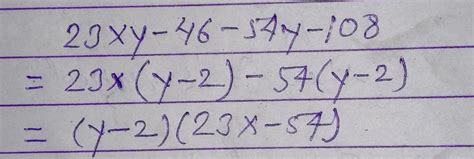 23xy-46-54y-108
= 23x(y-2)-54(y-2)
= (y-2)(23x-54)